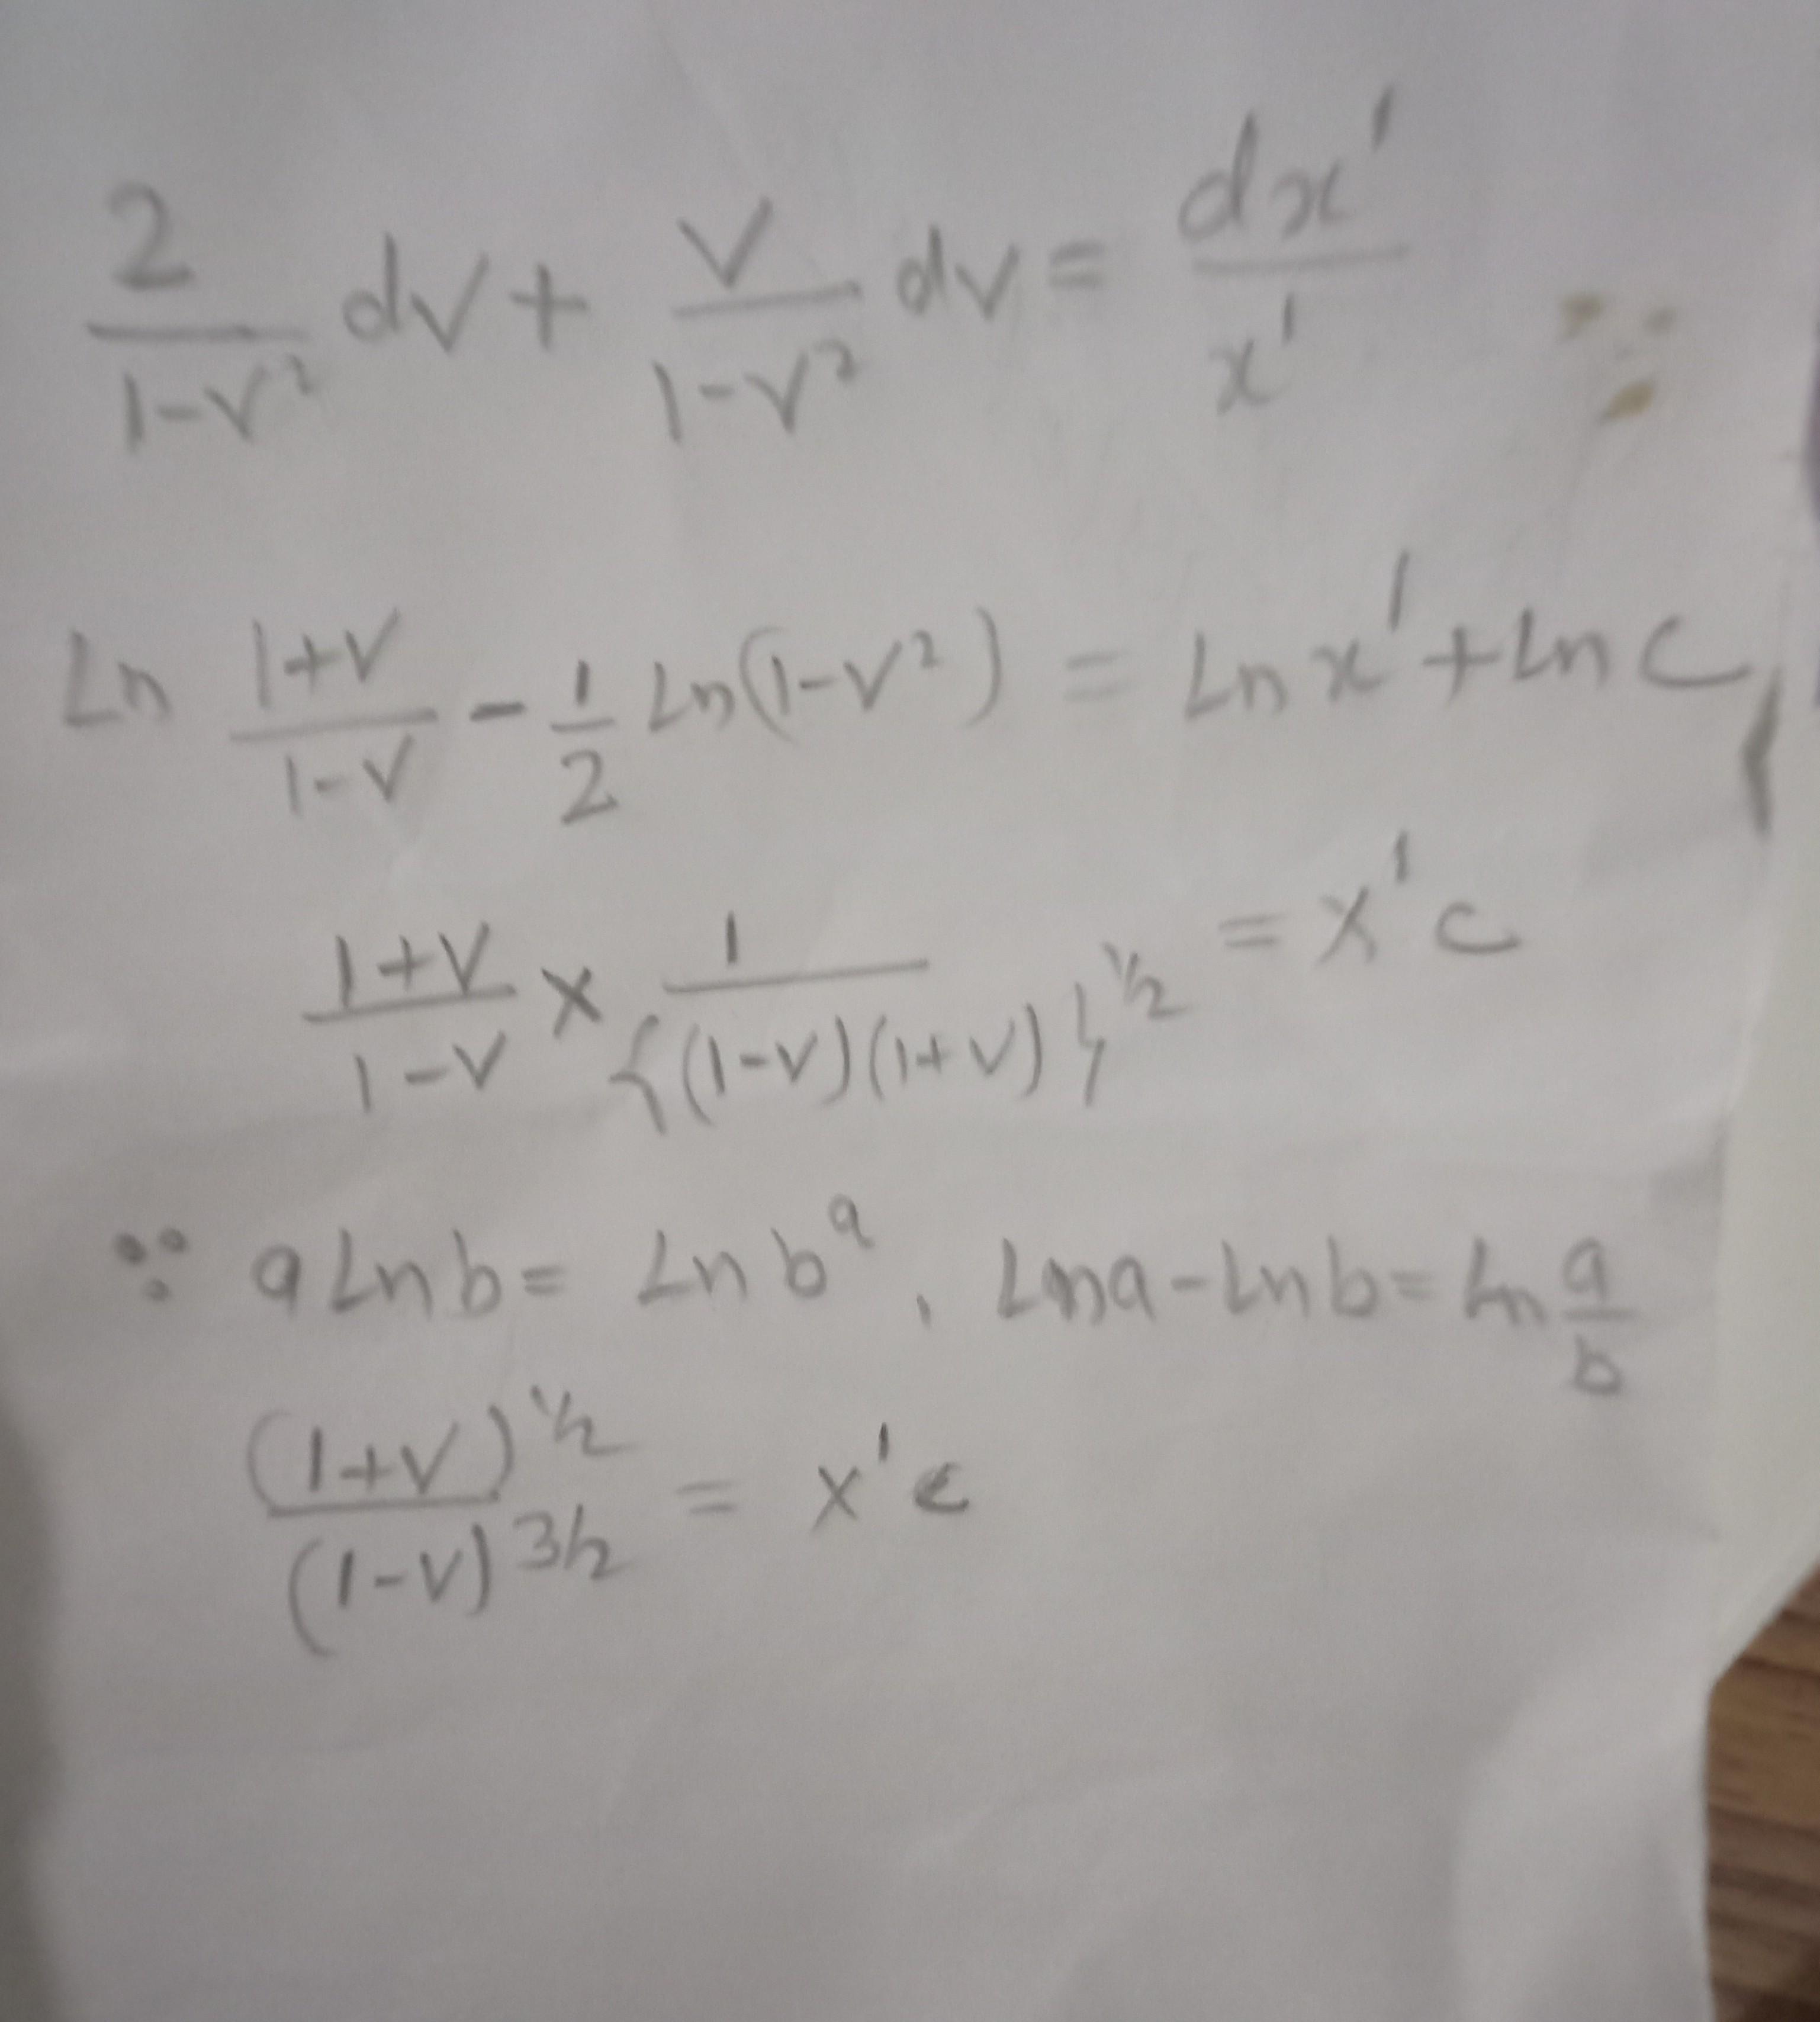 2/(1-v²) dv + v/(1-v²) dv = dx'/x'
Ln (1+v)/(1-v) - 1/2 Ln(1-v²) = Ln x' + Ln c,
(1+v)/(1-v) × 1/{(1-v)(1+v)}^½ = x'c
∵ a Ln b = Ln b^a, Ln a - Ln b = Ln a/b
(1+v)^½/(1-v)^3/2 = x'c